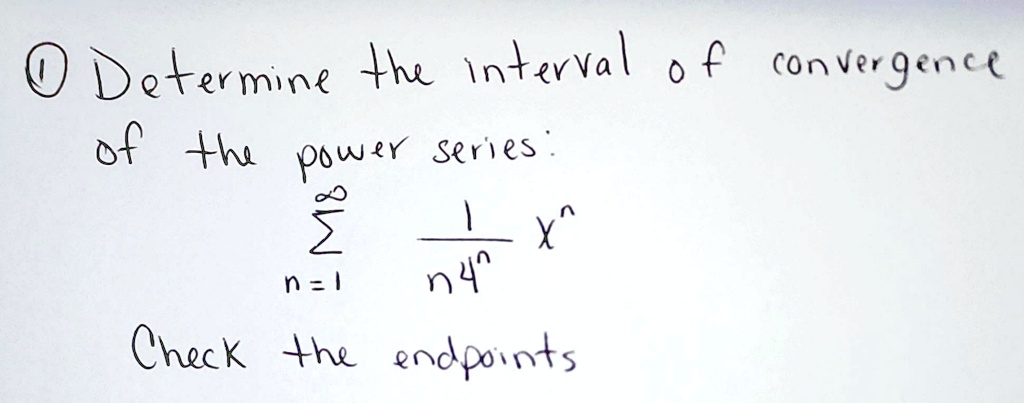 ① Determine the interval of convergence
of the power series:
∞
Σ 1/(n4ⁿ) xⁿ
n=1
Check the endpoints